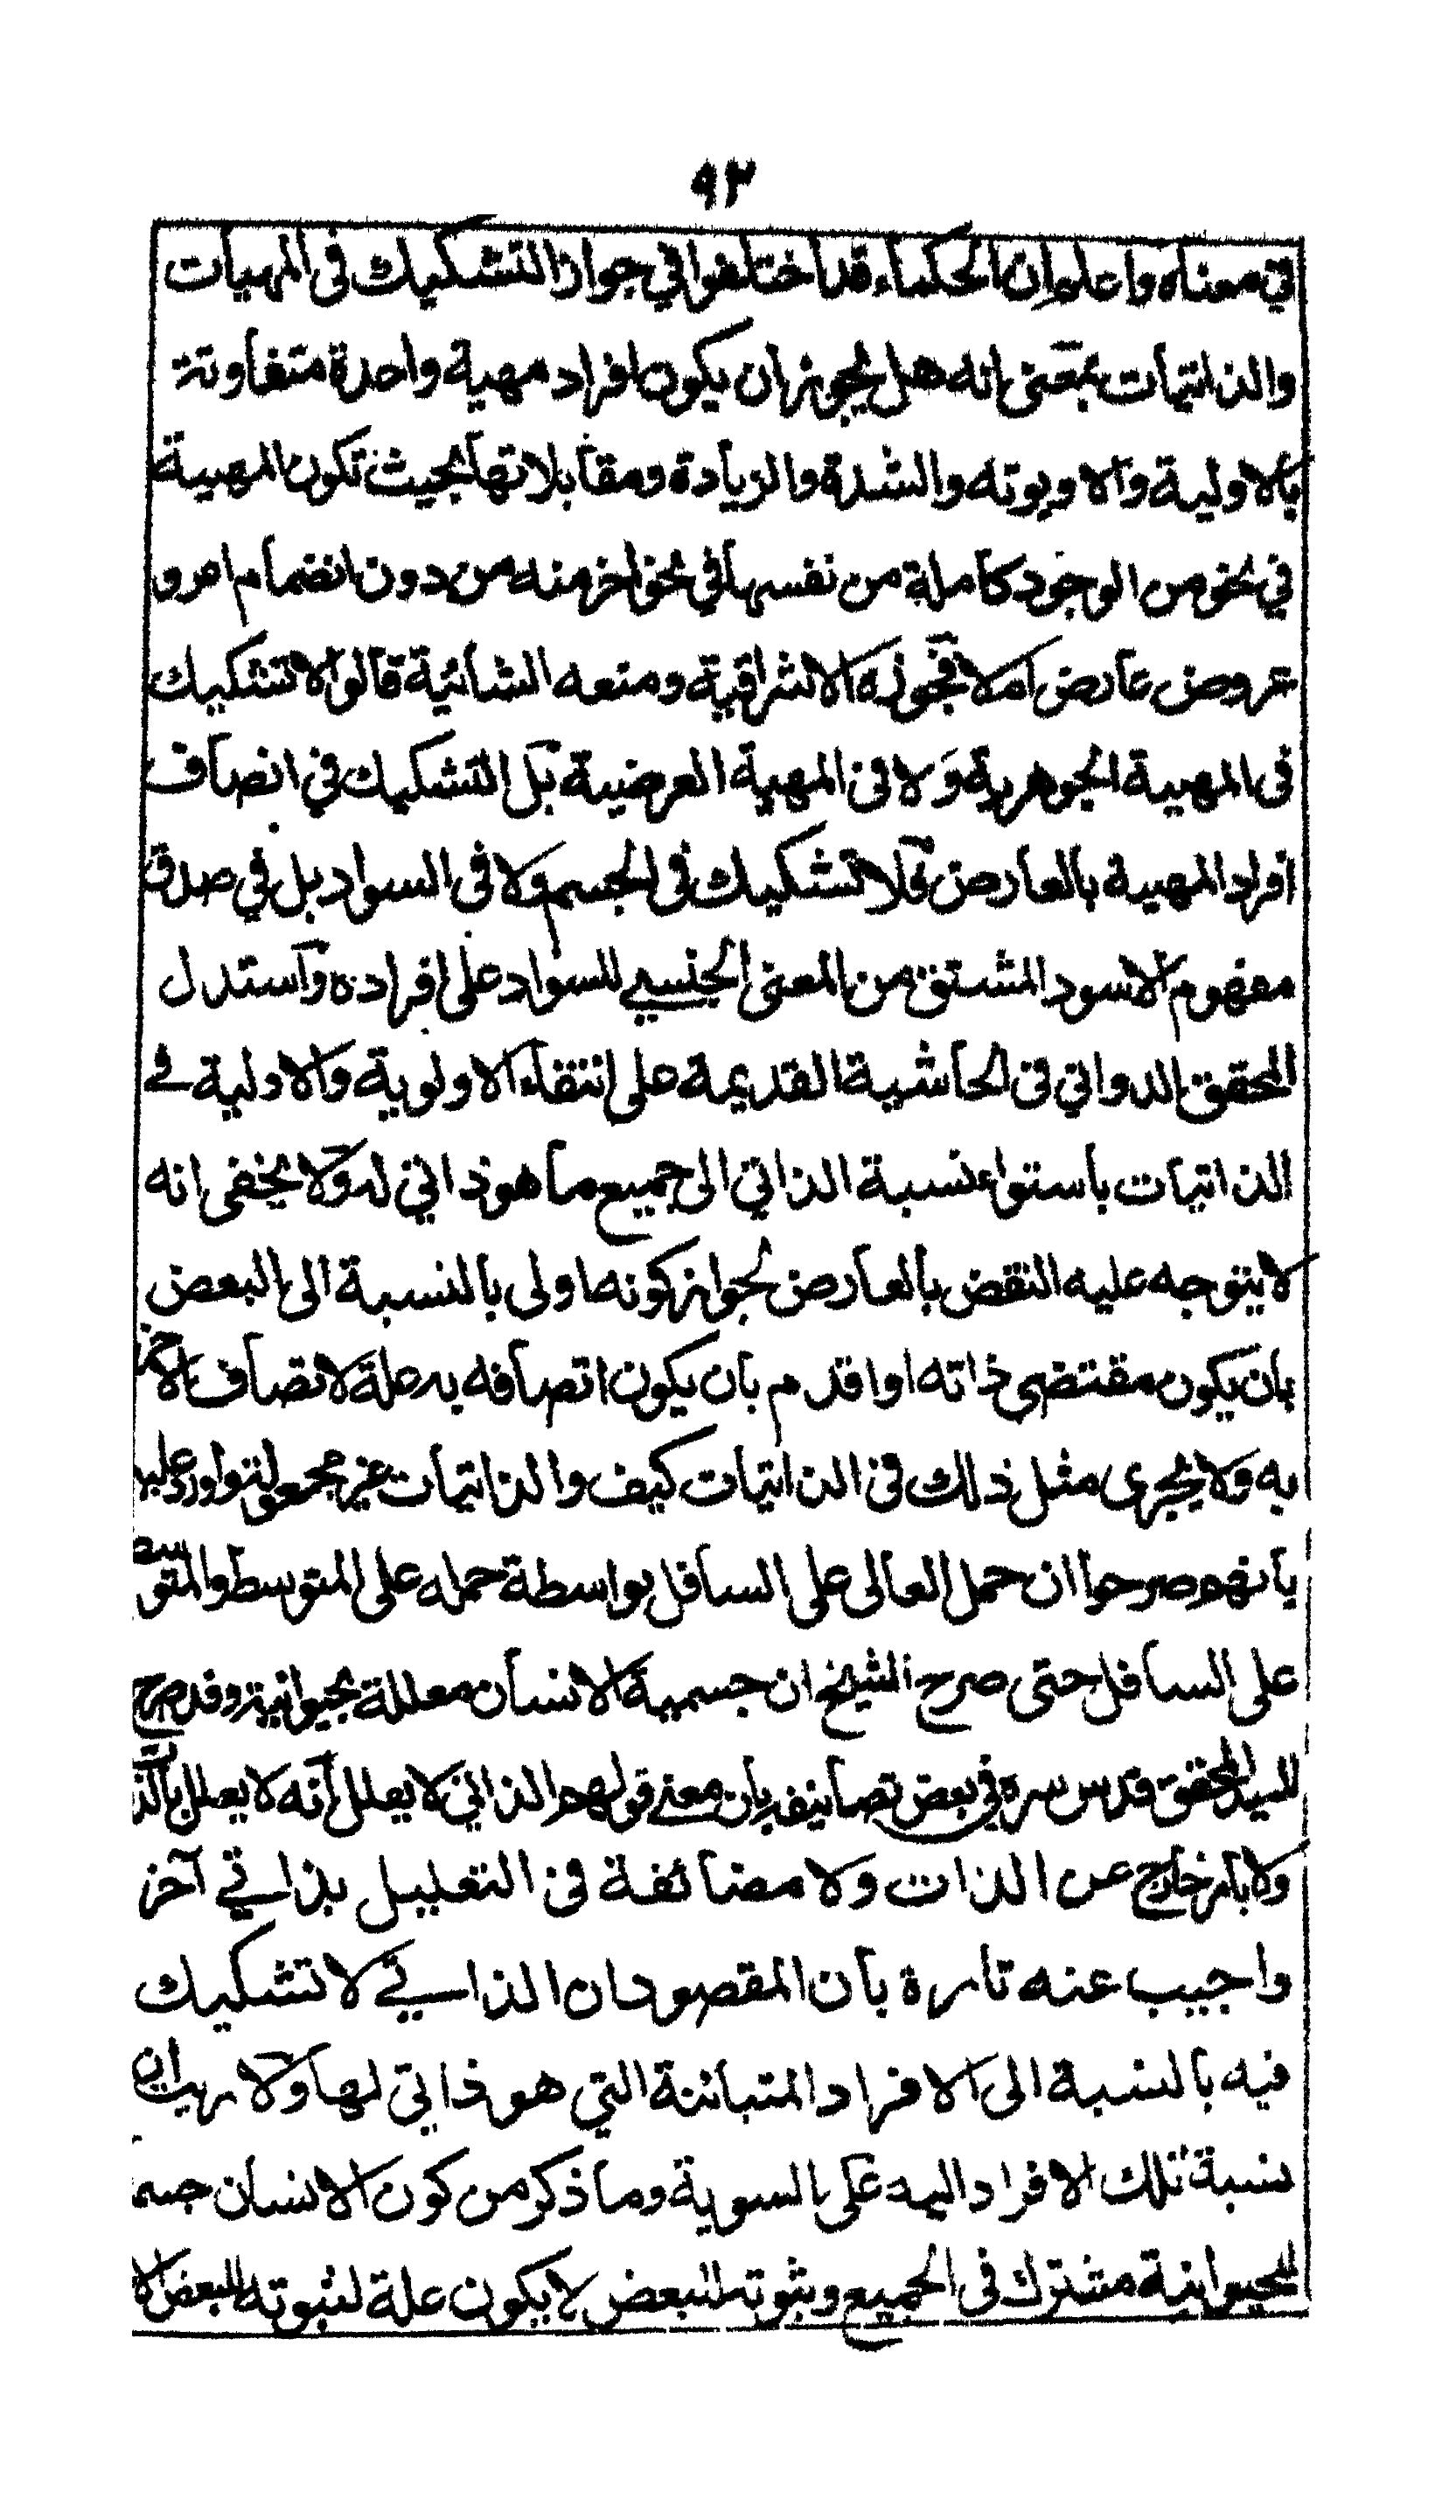 ٩٢
في معناه واعلم ان الحكماء قد اختلفوا في جواز التشكيك فى المهيات
والذاتيات بمعنى انه هل يجوز ان يكون افراد مهية واحدة متفاوتة
بالاولية والاولوية والشدة والزيادة ومقابلاتها بحيث تكون المهية
في نحو من الوجود كاملة من نفسها في نحو اخر منه من دون انضمام امر و
عروض عارض ام لا فجوزه الاشراقية ومنعه المشائية قالوا لا تشكيك
فى المهية الجوهرية ولا فى المهية العرضية بل التشكيك في اتصاف
افراد المهية بالعارض فلا تشكيك فى الجسم ولا فى السواد بل في صدق
مفهوم الاسود المشتق من المعنى الجنسي للسواد على افراده واستدل
المحقق الدواني فى الحاشية القديمة على انتفاء الاولوية والاولية في
الذاتيات باستواء نسبة الذاتي الى جميع ما هو ذاتي له ولا يخفى انه
لا يتوجه عليه النقض بالعارض لجواز كونه اولى بالنسبة الى البعض
بان يكون مقتضى ذاته او اقدم بان يكون اتصافه به علة لاتصاف الاخر
به ولا يجرى مثل ذلك فى الذاتيات كيف والذاتيات غير مجعولة واورد عليه
بانهم صرحوا ان حمل العالى على السافل بواسطة حمله على المتوسط والمتوسط
على السافل حتى صرح الشيخ ان جسمية الانسان معللة بحيوانيته وقد صرح
السيد المحقق قدس سره في بعض تصانيفه بان معنى قولهم الذاتي لا يعلل أنه لا يعلل بالذات
ولا بامر خارج عن الذات ولا مضائقة فى التعليل بذاتي آخر
واجيب عنه تارة بان المقصود ان الذاتي لا تشكيك
فيه بالنسبة الى الافراد المتبائنة التي هو ذاتى لها ولا ريب ان
نسبة تلك الافراد اليه على السوية وما ذكر من كون الانسان جسما
للحيوانية مشترك فى الجميع وثبوته للبعض لا يكون علة لثبوته للبعض الا